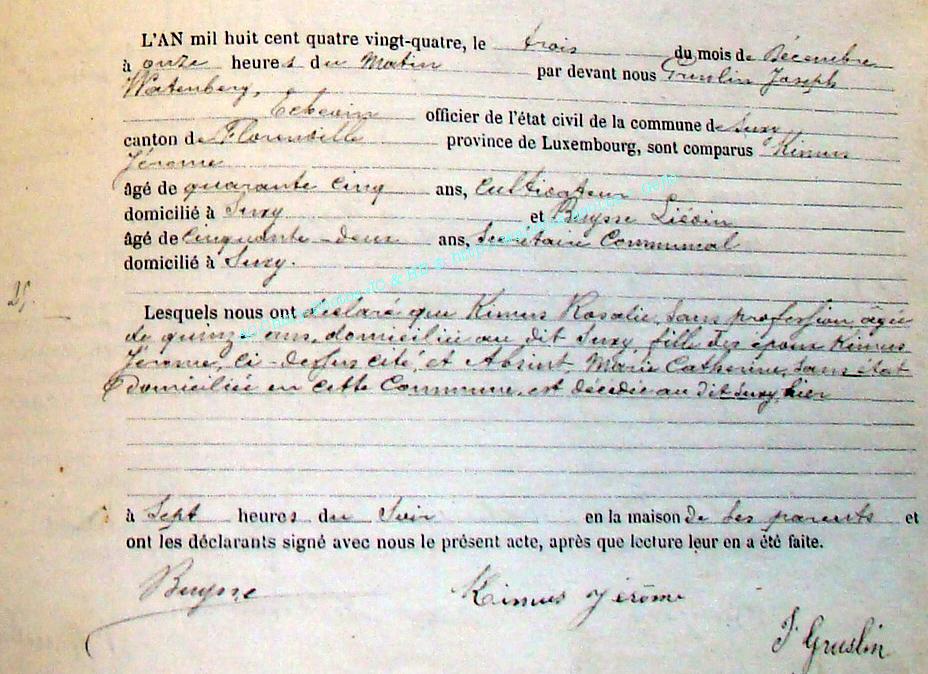 L'AN mil huit cent quatre vingt-quatre, le trois du mois de Décembre
à onze heures du Matin par devant nous Gruslin Joseph
Watenberg,
Echevin officier de l'état civil de la commune de Suxy
canton de Florenville province de Luxembourg, sont comparus Kimus
Jérome
âgé de quarante cinq ans, Cultivateur
domicilié à Suxy et Buysse Liévin
âgé de Cinquante-deux ans, Secrétaire Communal
domicilié à Suxy.
25.
Lesquels nous ont déclaré que Kimus Rosalie, sans profession, agée
de quinze ans, domiciliée au dit Suxy, fille des époux Kimus
Jérome, ci-dessus cité, et Absint Marie Catherine, sans état
domiciliée en cette Commune, est décédée au dit Suxy, hier
à Sept heures du Soir en la maison de ses parents et
ont les déclarants signé avec nous le présent acte, après que lecture leur en a été faite.
Buysse Kimus Jérôme
J Gruslin